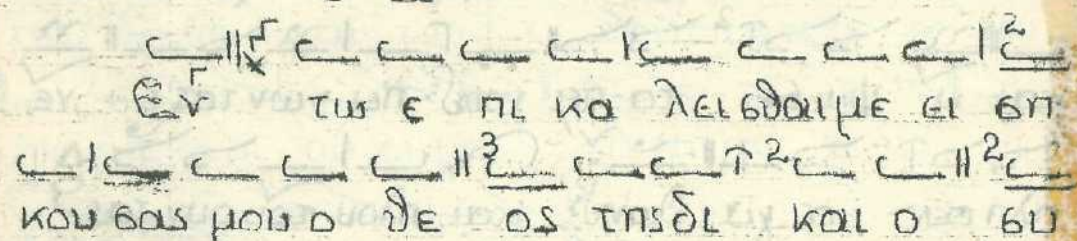 Εν τω ε πι κα λεισθαιμε ει ση
κου σας μου ο θε ος τηςδι και ο συ